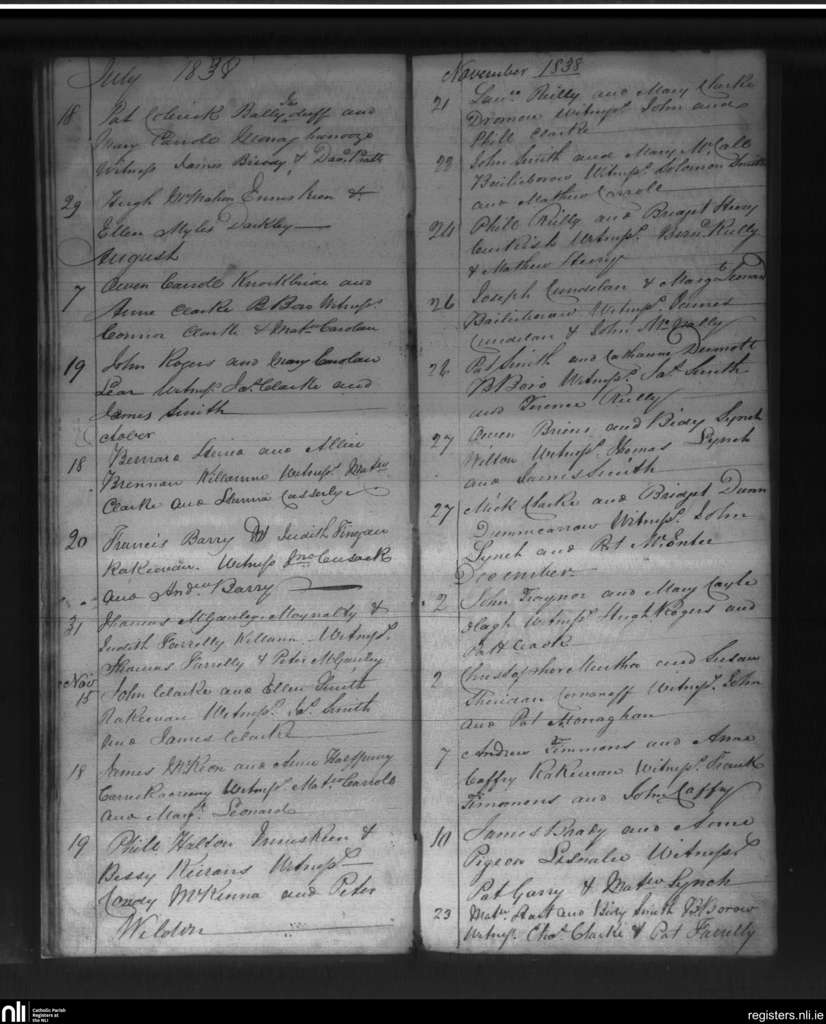 July 1838
18 Pat Cusick Bally duff and
Mary Carrole
Witness James Brady & Dav. Pratt
29 Hugh McMahon Enniskeen &
Ellen Myles Darkley
August
7 Owen Carrole Knockbride and
Anne Clarke B Boro Witness.
Connor Clarke & Mat. Carolan
19 John Rogers and Mary Carolan
Lear Witness. Jas. Clarke and
James Smith
October
18 Bernard and Allice
Brennan Killanne Witness. Mathw
Clarke and Casserly
20 Francis Barry & Judith Finegan
Rakeevan. Witness Jno Cusack
and Andrew Barry
31 Thomas McGauley Moynalty &
Judith Farrelly Killann. Witness.
Thomas Farrelly & Peter McGauley
Nov
15 John Clarke and Ellen Smith
Rakeevan Witness. Jas. Smith
and James Clarke
18 James McKeon and Anne Halfpenny
Witness. Matw Carrole
and Margt. Leonard
19 Phill Halton Inniskeen &
Bessy Kierans Witness.
McKenna and Peter
Weldon
November 1838
21 Laurce Reilly and Mary Clarke
Dromore Witness. John and
Phill Clarke
22 John Smith and Mary McCabe
Bailieboro Witness. Solomon Smith
and Mathew Carrole
24 Phill Reilly and Bridget Henry
Witness. Bernd. Reilly
& Mathew Henry
26 Joseph Cundelan & Margt Leonard
Bailieboro Witness. James
Cundelan & John McNally
26 Pat Smith and Catharine Dermott
B Boro Witness. Jas. Smith
and Terence Reilly
27 Owen Briens and Bidy Lynch
Witness. Thomas Lynch
and James Smith
27 Mick Clarke and Bridget Dunn
Witness. John
Lynch and Pat McEntee
December
2 John Traynor and Mary Coyle
Witness. Hugh Rogers and
Patt Cook
2 Christopher Murtha and Susan
Cornaneff Witness. John
and Pat Monaghan
7 Andrew Timmons and Anne
Caffry Rakeevan Witness. Frank
Timmons and John Caffry
10 James Brady and Anne
Pigeon Lisnalee Witness.
Pat Garry & Matw Lynch
23 Matw. Hart and Bidy Smith B Borow
Witness. Chas. Clarke & Pat Farrelly
nli Catholic Parish
Registers at
the NLI
registers.nli.ie